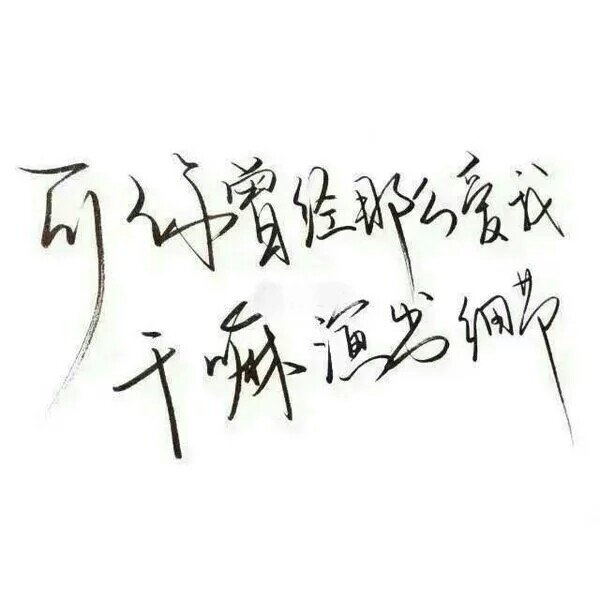 可你曾经那么爱我
干嘛演出细节